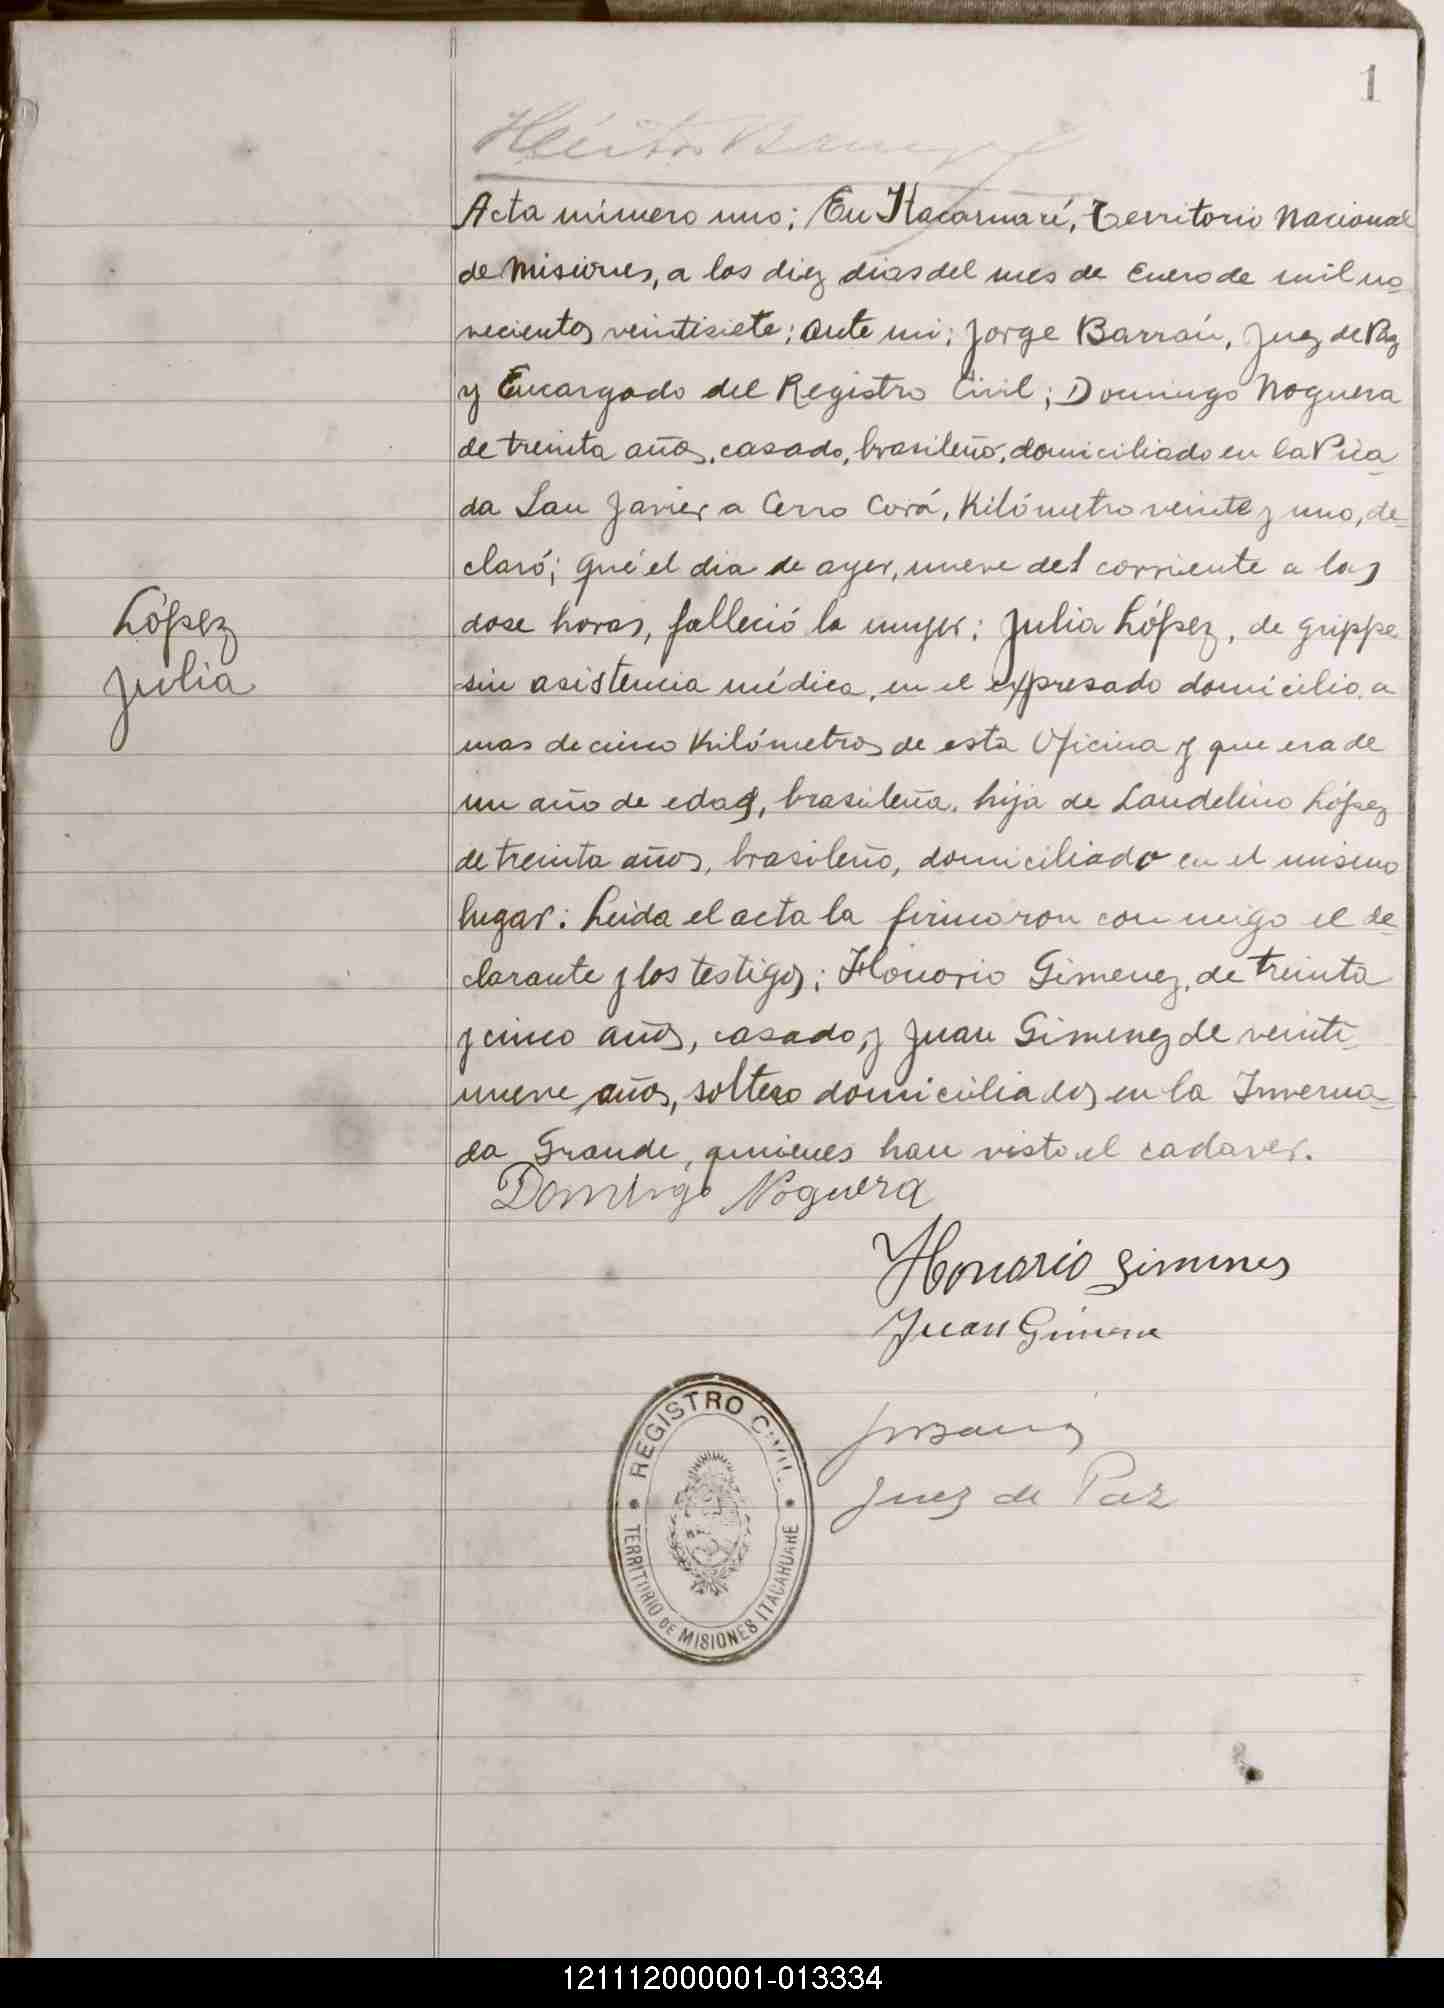 1
Héctor
Acta número uno; En Itacaruaré, Territorio Nacional
de Misiones, a los diez dias del mes de Enero de mil no-
vecientos veintisiete; ante mi; Jorge Barrán, Juez de Paz
y Encargado del Registro Civil; Domingo Noguera
de treinta años, casado, brasileño, domiciliado en la Pica-
da San Javier a Cerro Corá, Kilómetro veinte y uno, de-
claró; que el dia de ayer, nueve del corriente a las
dose horas, falleció la mujer: Julia López, de grippe
sin asistencia médica, en el expresado domicilio, a
mas de cinco Kilómetros de esta Oficina y que era de
un año de edad, brasileña, hija de Laudelino López
de treinta años, brasileño, domiciliado en el mismo
lugar: Leida el acta la firmaron con migo el de-
clarante y los testigos; Honorio Gimenez, de treinta
y cinco años, casado, y Juan Gimenez de veinti-
nueve años, soltero domiciliados en la Inverna-
da Grande, quienes han visto el cadaver.
López
Julia
Domingo Noguera
Honorio Gimenes
Juan Gimene
Juez de Paz
REGISTRO CIVIL
TERRITORIO DE MISIONES ITACARUARE
121112000001-013334